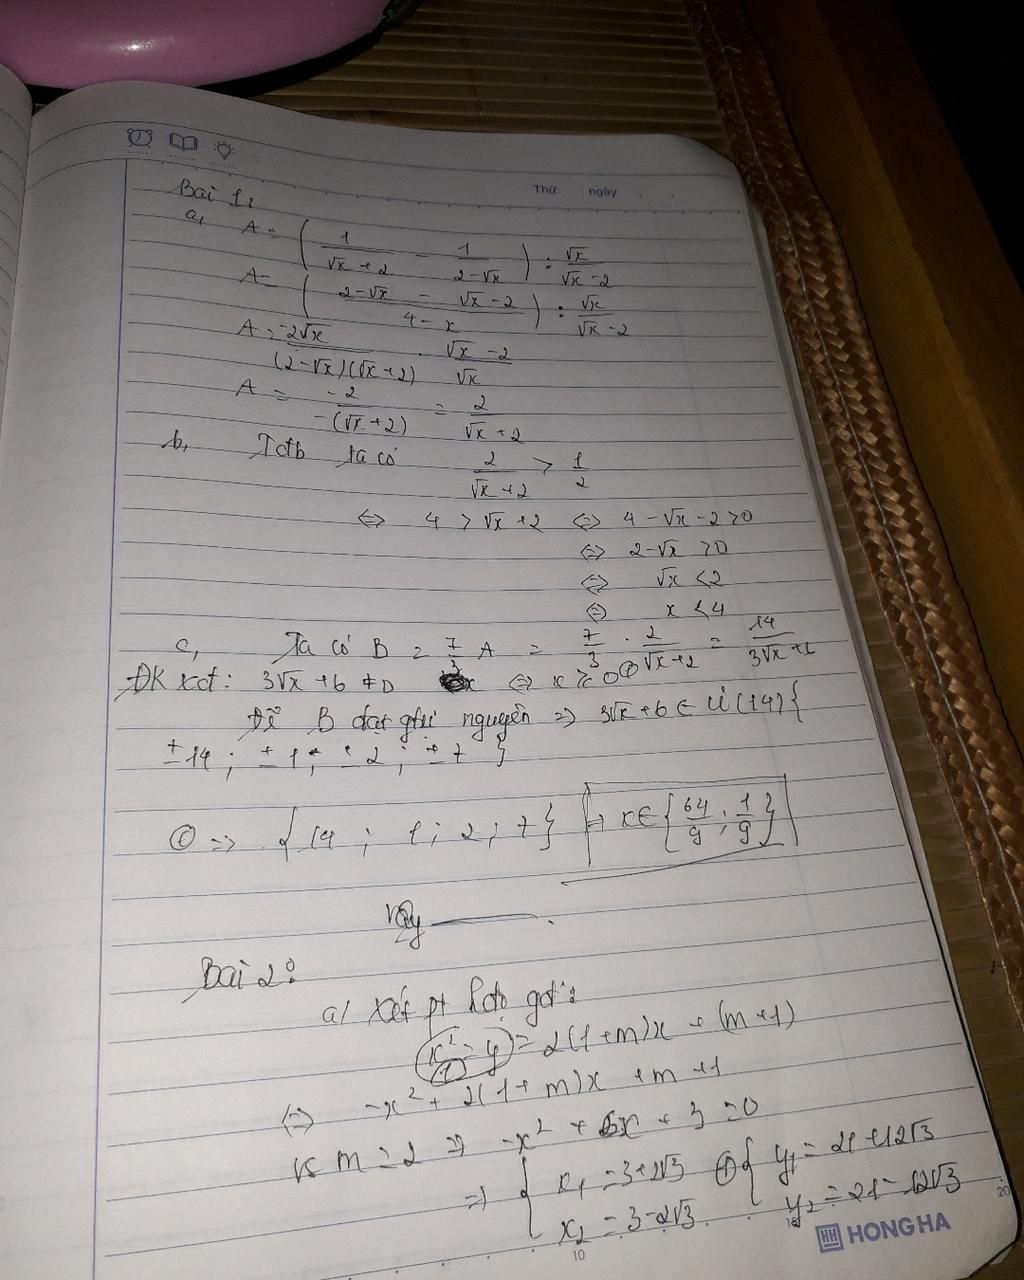 Thứ ngày
Bài 1:
a, A = ( 1/(√x + 2) - 1/(2-√x) ) : √x/(√x - 2)
A = ( (2-√x - √x - 2)/(4 - x) ) : √x/(√x - 2)
A = -2√x/((2-√x)(√x+2)) . (√x - 2)/√x
A = -2/(-(√x+2)) = 2/(√x + 2)
b, Tctb ta có 2/(√x + 2) > 1/2
⇔ 4 > √x + 2 ⇔ 4 - √x - 2 > 0
⇔ 2-√x > 0
⇔ √x < 2
⇔ x < 4
c, Ta có B = 7/3 A = 7/3 . 2/(√x+2) = 14/(3√x+6)
ĐK xđ: 3√x + 6 ≠ 0 ⇔ x ≥ 0
Để B đạt giá nguyên => 3√x + 6 ∈ Ư(14) {
± 14 ; ± 1 ; ± 2 ; ± 7 }
=> { 14 ; 1 ; 2 ; 7 } => x ∈ { 64/9 ; 1/9 }
Vậy
Bài 2:
a/ Xét pt
x² = y = 2(1+m)x + (m+1)
⇔ -x² + 2(1+m)x + m + 1
Vs m = 2 => -x² + 6x + 3 = 0
=> { x₁ = 3+2√3 { y₁ = 21 + 12√3
x₂ = 3-2√3 y₂ = 21 - 12√3
10 15 20
HH HONG HA